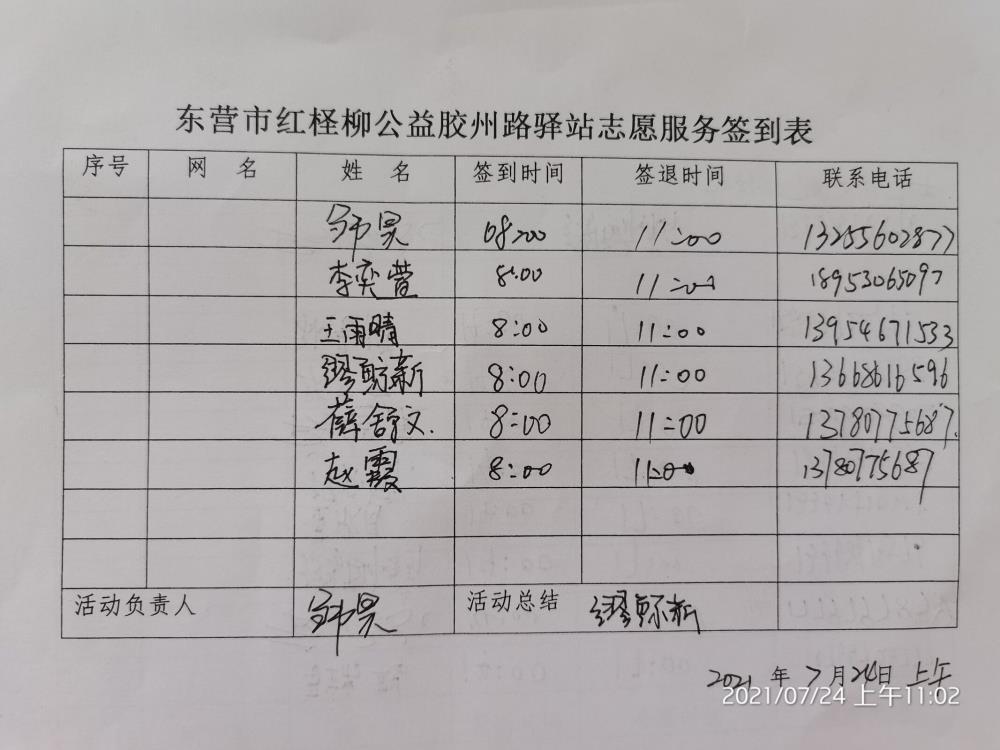 东营市红柽柳公益胶州路驿站志愿服务签到表
序号 网 名 姓 名 签到时间 签退时间 联系电话
08:00 11:00 13255602877
李奕萱 8:00 11:00 18953065097
王雨晴 8:00 11:00 13954671533
8:00 11:00 13668616596
薛舒文. 8:00 11:00 13780775687.
赵霞 8:00 11:00 13780775687
活动负责人 活动总结
2021 年 7月24日 上午
2021/07/24 上午11:02